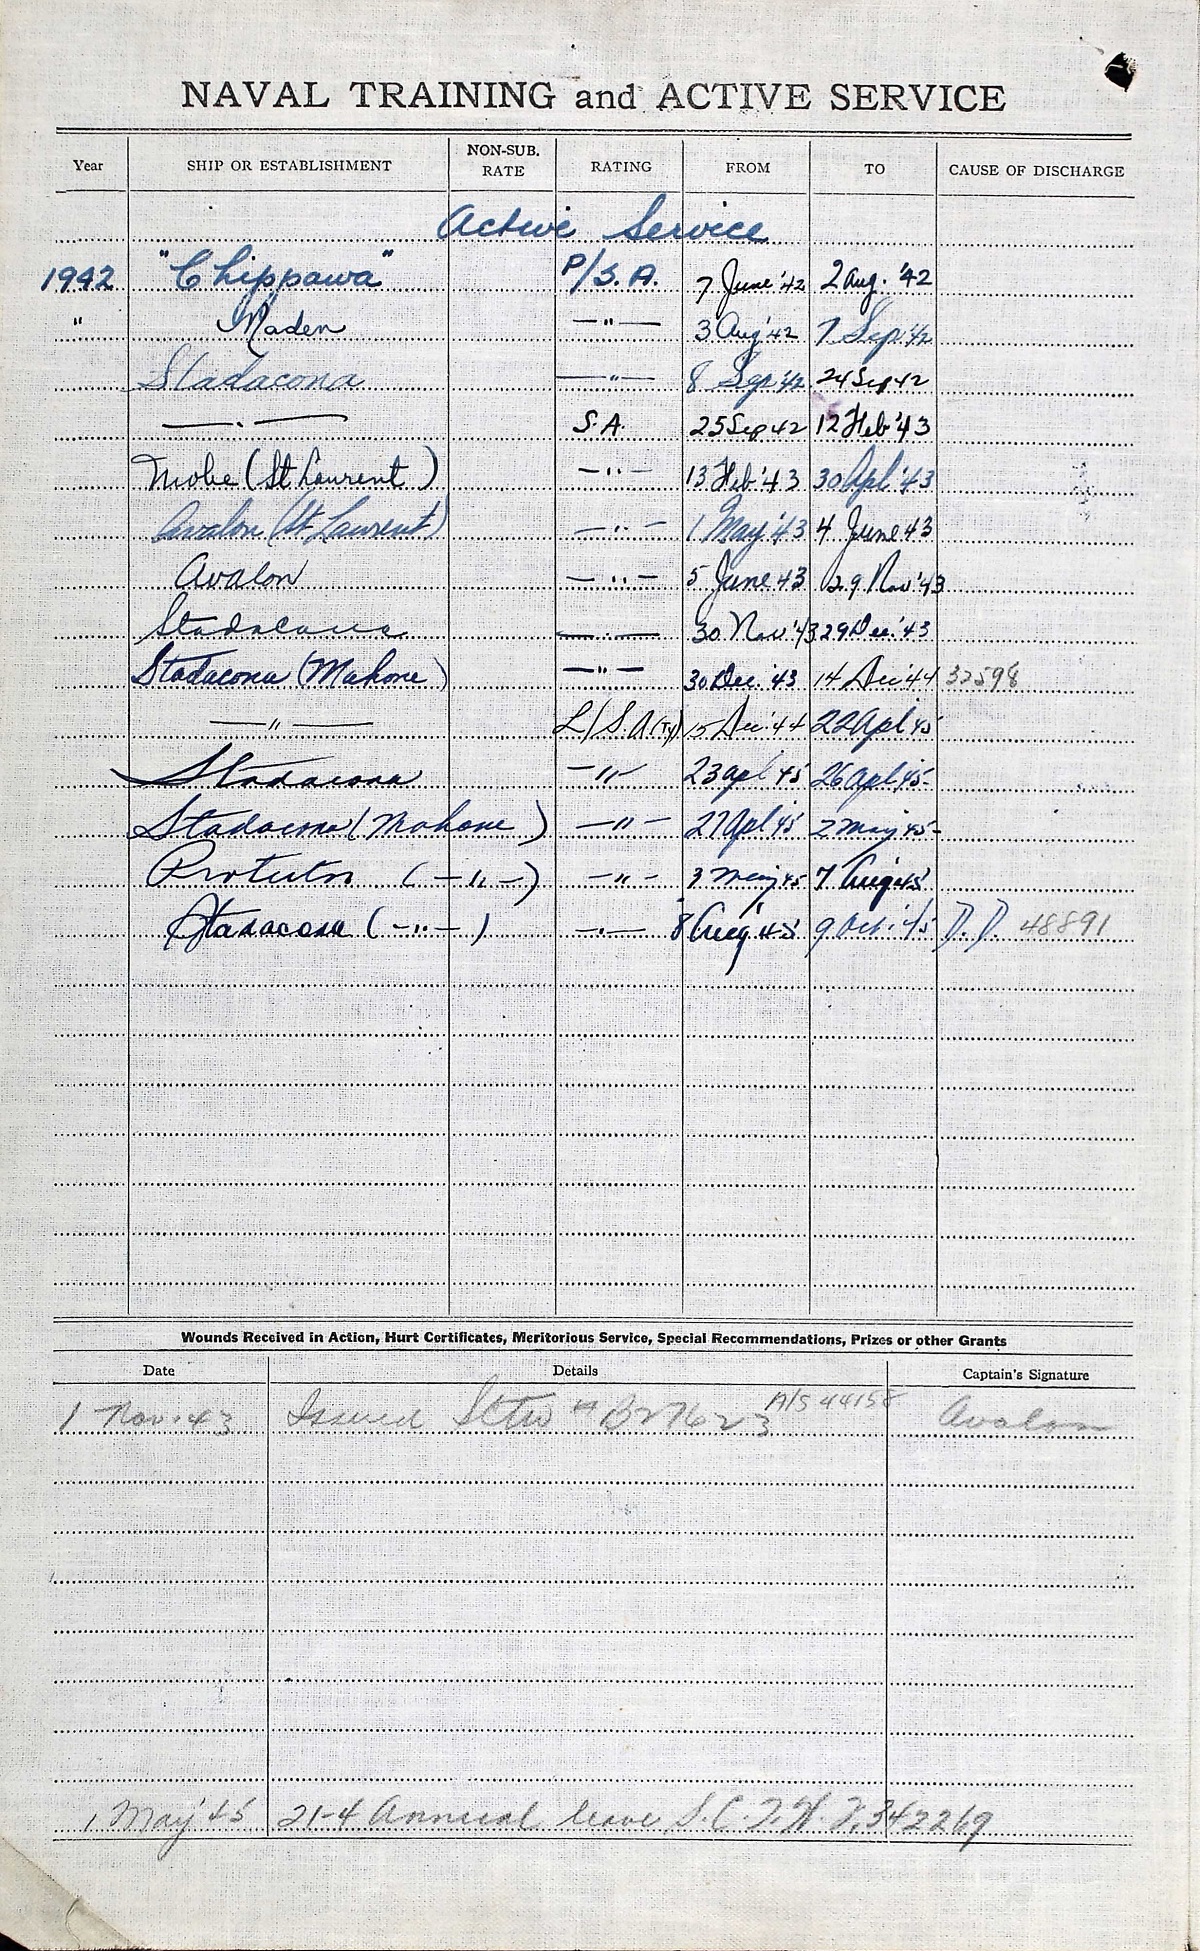 NAVAL TRAINING and ACTIVE SERVICE
Year SHIP OR ESTABLISHMENT NON-SUB. RATE RATING FROM TO CAUSE OF DISCHARGE
Active Service
1942 "Chippawa" P/S.A. 7 June '42 2 Aug. '42
" Naden —"— 3 Aug '42 7 Sep. '42
Stadacona —"— 8 Sep '42 24 Sep 42
—"— S.A. 25 Sep 42 12 Feb '43
Niobe (St Laurent) —"— 13 Feb '43 30 Apl '43
Avalon (St Laurent) —"— 1 May '43 4 June 43
Avalon —"— 5 June 43 29 Nov '43
Stadacona —"— 30 Nov '43 29 Dec. '43
Stadacona (Mahone) —"— 30 Dec. '43 14 Dec '44 32598
—"— L/S.A (Ty) 15 Dec '44 22 Apl 45
Stadacona —"— 23 apl 45 26 apl 45
Stadacona (Mahone) —"— 27 Apl 45 2 May 45
Protector (—"—) —"— 3 May 45 7 Aug 45
Stadacona (—"—) —"— 8 Aug 45 9 Oct. '45 D.D. 48891
Wounds Received in Action, Hurt Certificates, Meritorious Service, Special Recommendations, Prizes or other Grants
Date Details Captain's Signature
A/S 44158
1 Nov. 43 Issued # B27623 Avalon
1 May '45 21-4 Annual leave 342269